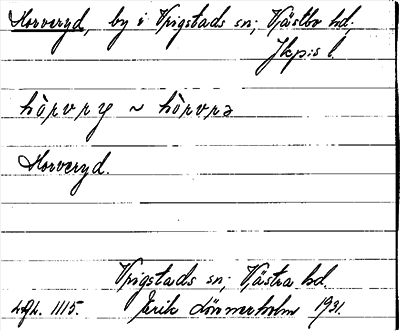 Horveryd, by i Vrigstads sn; Västbo hd;
Jkp:s l.
hòrvry ~ hòrvrə
Horveryd.
Vrigstads sn; Västra hd.
Lfl. 1115. Erik Lönnerholm 1931.